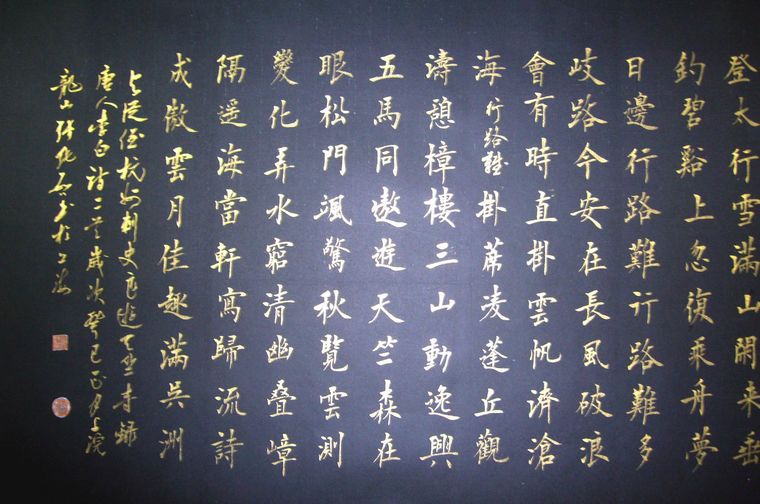 登太行雪滿山閑来垂
釣碧谿上忽復乘舟夢
日邊行路難行路難多
岐路今安在長風破浪
會有時直掛雲帆濟滄
海行路難掛席凌蓬丘觀
濤憩樟樓三山動逸興
五馬同遨遊天竺森在
眼松門颯驚秋覽雲測
變化弄水窮清幽叠嶂
隔遥海當軒寫歸流詩
成傲雲月佳趣滿吳洲
与從侄杭州刺史良遊天竺寺録
唐人李白詩二首歲次癸巳正月上浣
龍山張化書於上海